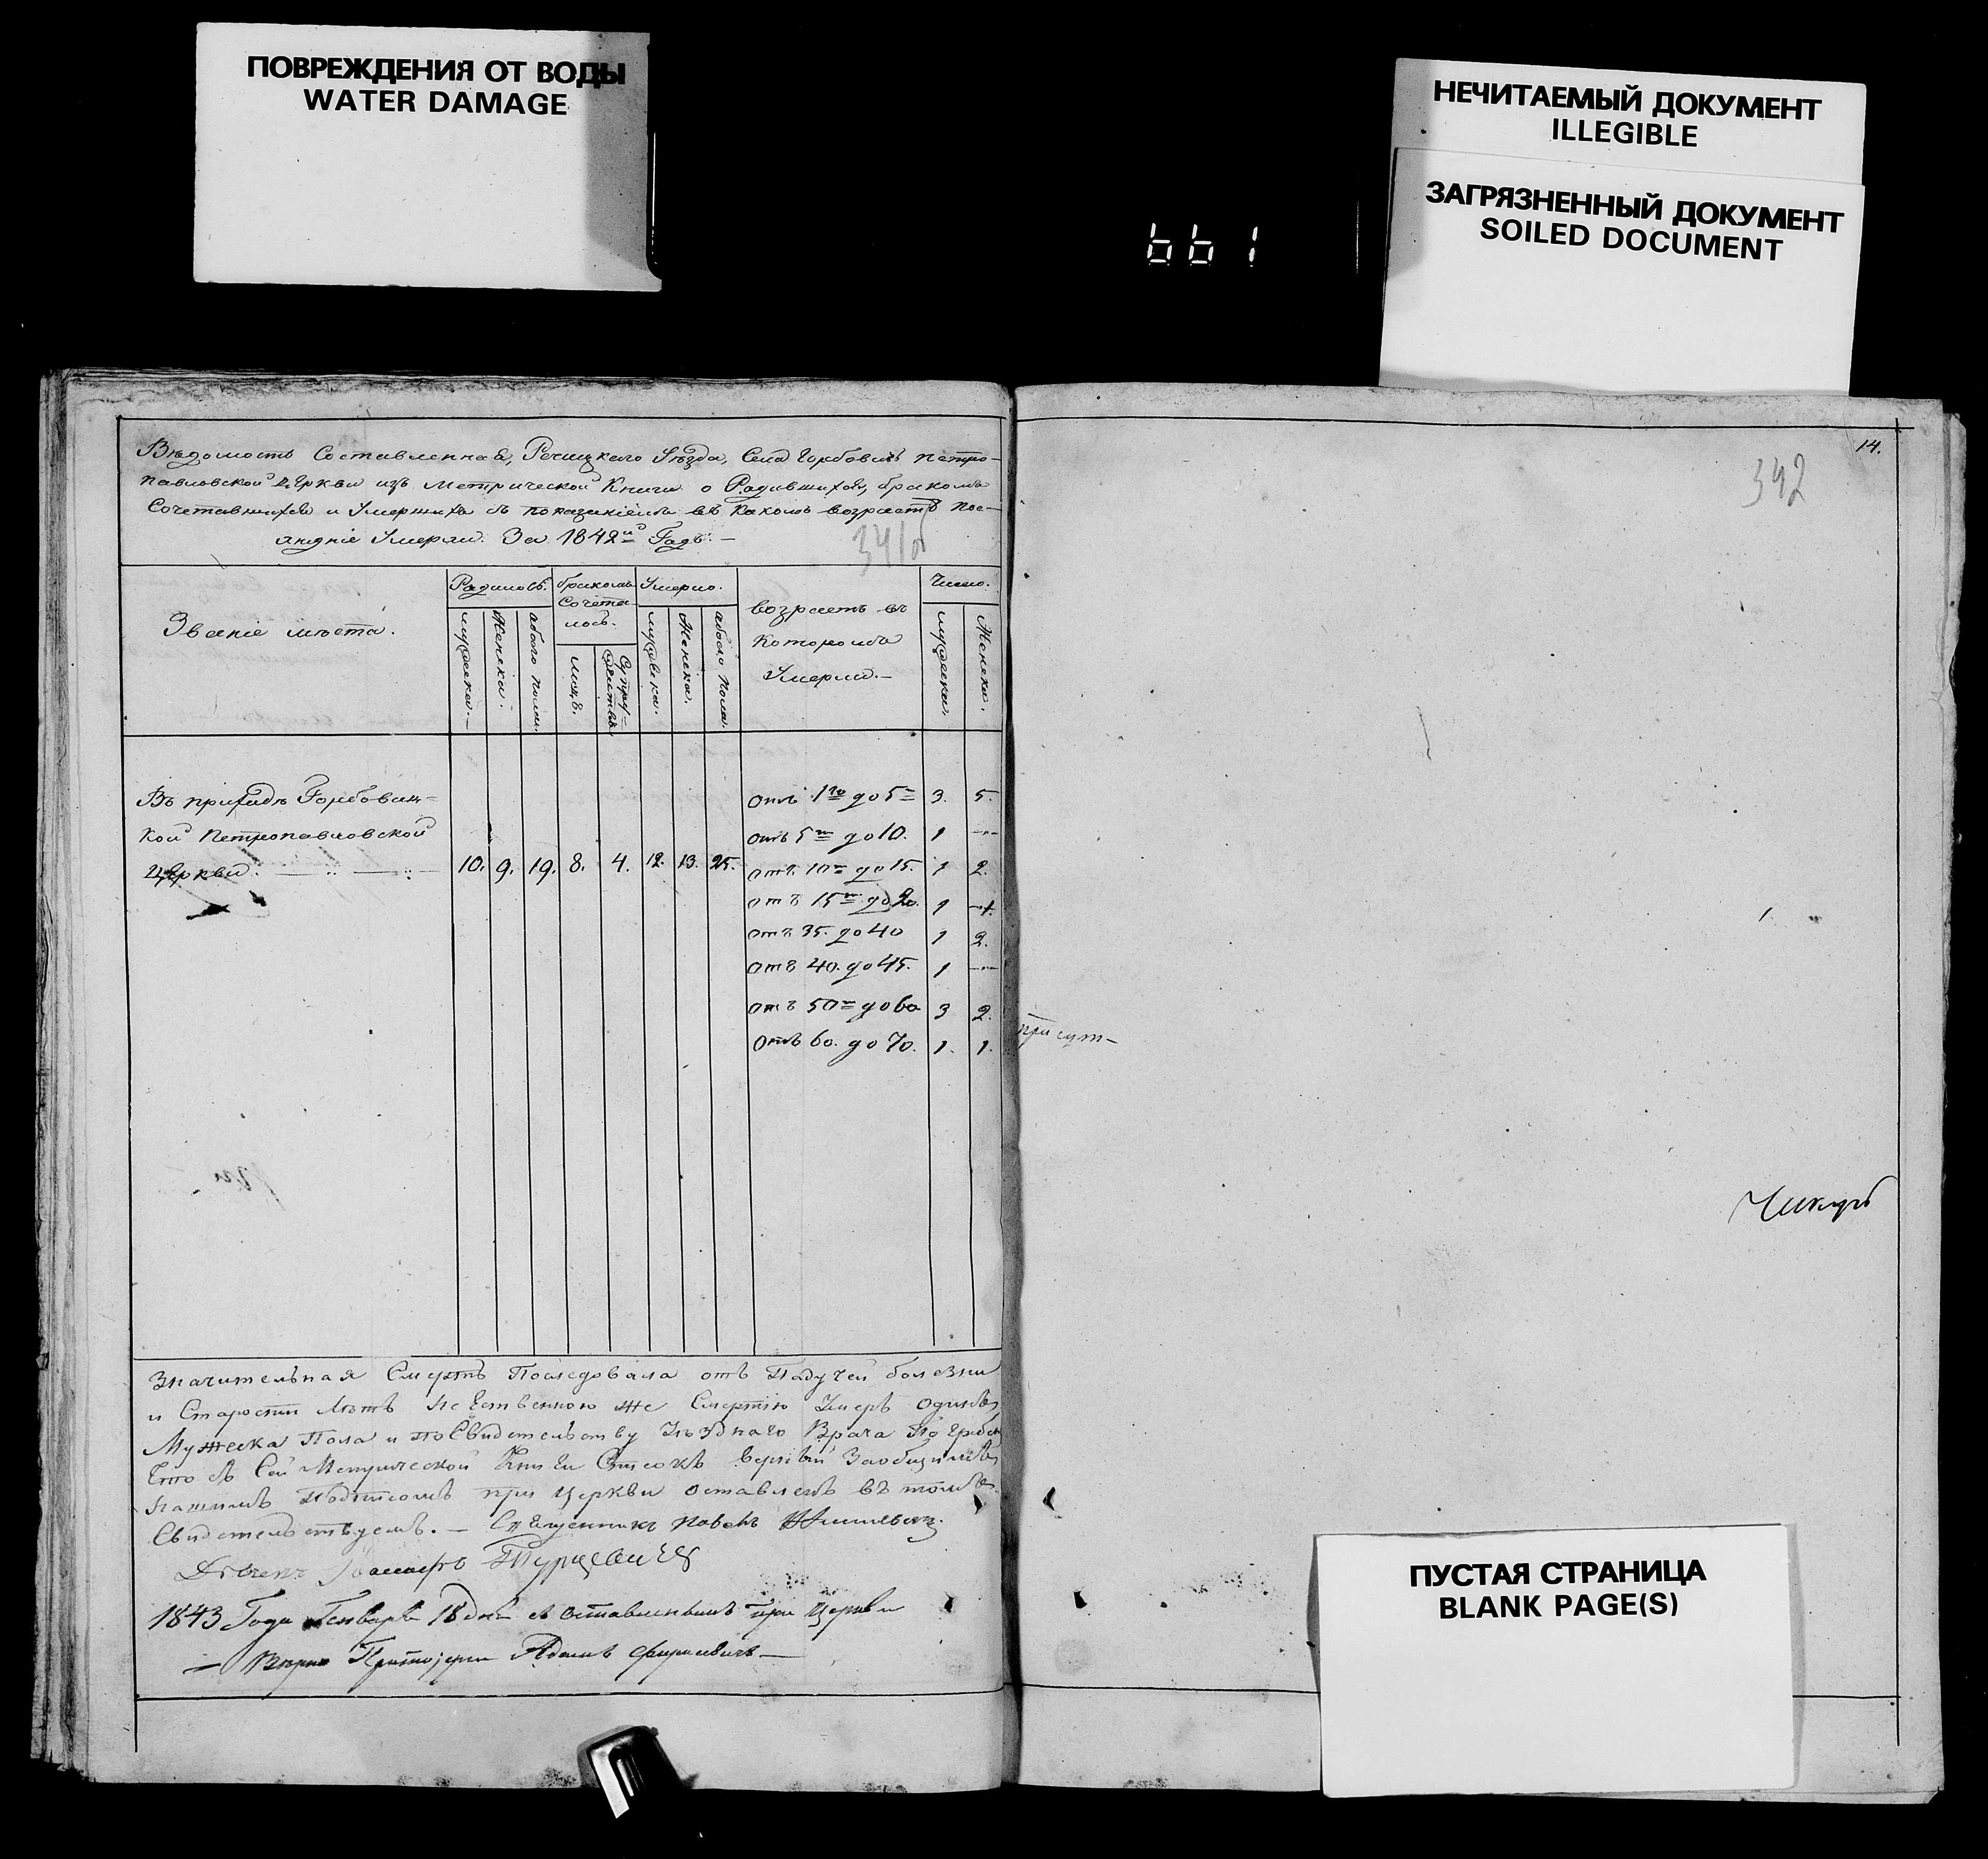 ПОВРЕЖДЕНИЯ ОТ ВОДЫ
WATER DAMAGE
НЕЧИТАЕМЫЙ ДОКУМЕНТ
ILLEGIBLE
ЗАГРЯЗНЕННЫЙ ДОКУМЕНТ
SOILED DOCUMENT
661
Вѣдомость Составленная, Речицкаго Уѣзда, Села Горбовичъ Петро-
павловской Церкви изъ Метрической Книги о Родившихся, бракомъ
Сочетавшихся и Умершихъ съ показаніемъ въ какомъ возрастѣ пос-
лѣдніе Умерли. За 1842й Годъ. —
341об
Званіе мѣста.
Родилось.
бракомъ Сочета-лось.
Умерло.
возрастъ въ которомъ Умерли. —
Число.
мужеска. —
Женска.
обоего пола.
лицъ.
Супру-жествъ
мужеска.
Женска.
обоего пола.
мужеска.
Женска.
Въ приходѣ Горбовиц-
кой Петропавловской
Церкви. 10. 9. 19. 8. 4. 12. 13. 25.
отъ 1го до 5 3. 5.
отъ 5ти до 10. 1 —
отъ 10 до 15. 1 2.
отъ 15ти до 20. 1 1.
отъ 35. до 40 1 2.
отъ 40. до 45. 1 —
отъ 50 до 60 3 2.
отъ 60. до 70. 1. 1.
Значительная Смерть Последовала отъ Падучей болезни
и Старости лѣтъ не Ественною же Смертію Умеръ одинъ
Мужеска Пола и по Свидетельству Уѣзднаго Врача
Что съ Сей Метрической Книги Списокъ верный За общимъ
нашимъ Подписомъ при Церкви оставленъ въ томъ
Свидетельствуемъ. — Священникъ Павелъ
Дьячекъ Турцевичъ
1843 Года Генваря 18 дня съ оставленнымъ при Церкви
— Вѣрно Протоіерей Адамъ —
14.
342
присут-
ПУСТАЯ СТРАНИЦА
BLANK PAGE(S)